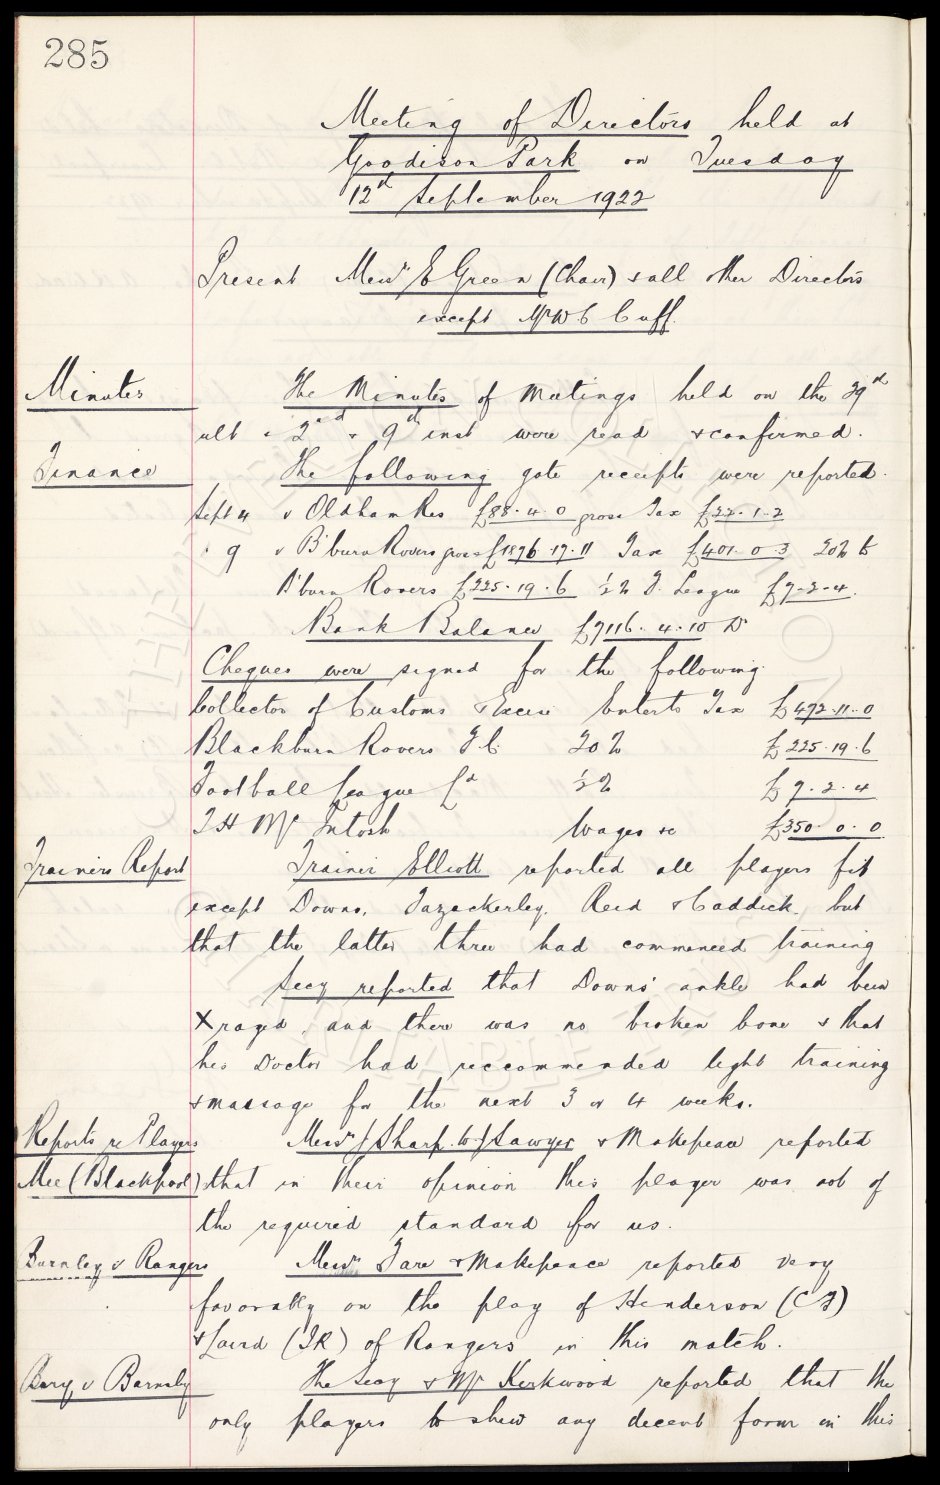 285
Meeting of Directors held at
Goodison Park on Tuesday
12th September 1922
Present Messrs E Green (Chair) & all other Directors
except Mr W C Cuff.
Minutes The Minutes of Meetings held on the 29th
ult & 2nd & 9th inst were read & confirmed.
Finance The following gate receipts were reported.
Sept 4 v Oldham Res £88. 4. 0 gross Tax £22. 1. 2
" 9 v B'burn Rovers gross £1876. 17. 11 Tax £401. 0. 3 20% to
B'burn Rovers £225. 19. 6 ½% F. League £7. 2. 4.
Bank Balance £7116. 4. 10 Dr
Cheques were signed for the following:
Collector of Customs & Excise Enterts Tax £472. 11. 0
Blackburn Rovers F.C. 20% £225. 19. 6
Football League Ld ½% £7. 2. 4
T H McIntosh Wages &c £350. 0. 0
Trainers Report Trainer Elliott reported all players fit
except Downs, Fazackerley, Reid & Caddick, but
that the latter three had commenced training
Secy reported that Downs' ankle had been
Xrayed, and there was no broken bone & that
his Doctor had reccommended light training
& massage for the next 3 or 4 weeks.
Reports re Players Messrs J Sharp. W J Sawyer & Makepeace reported
Mee (Blackpool) that in their opinion this player was not of
the required standard for us.
Burnley v Rangers Messrs Fare & Makepeace reported very
favorably on the play of Henderson (CF)
& Laird (IR) of Rangers in this match.
Bury v Barnsley The Secy & Mr Kirkwood reported that the
only players to shew any decent form in this